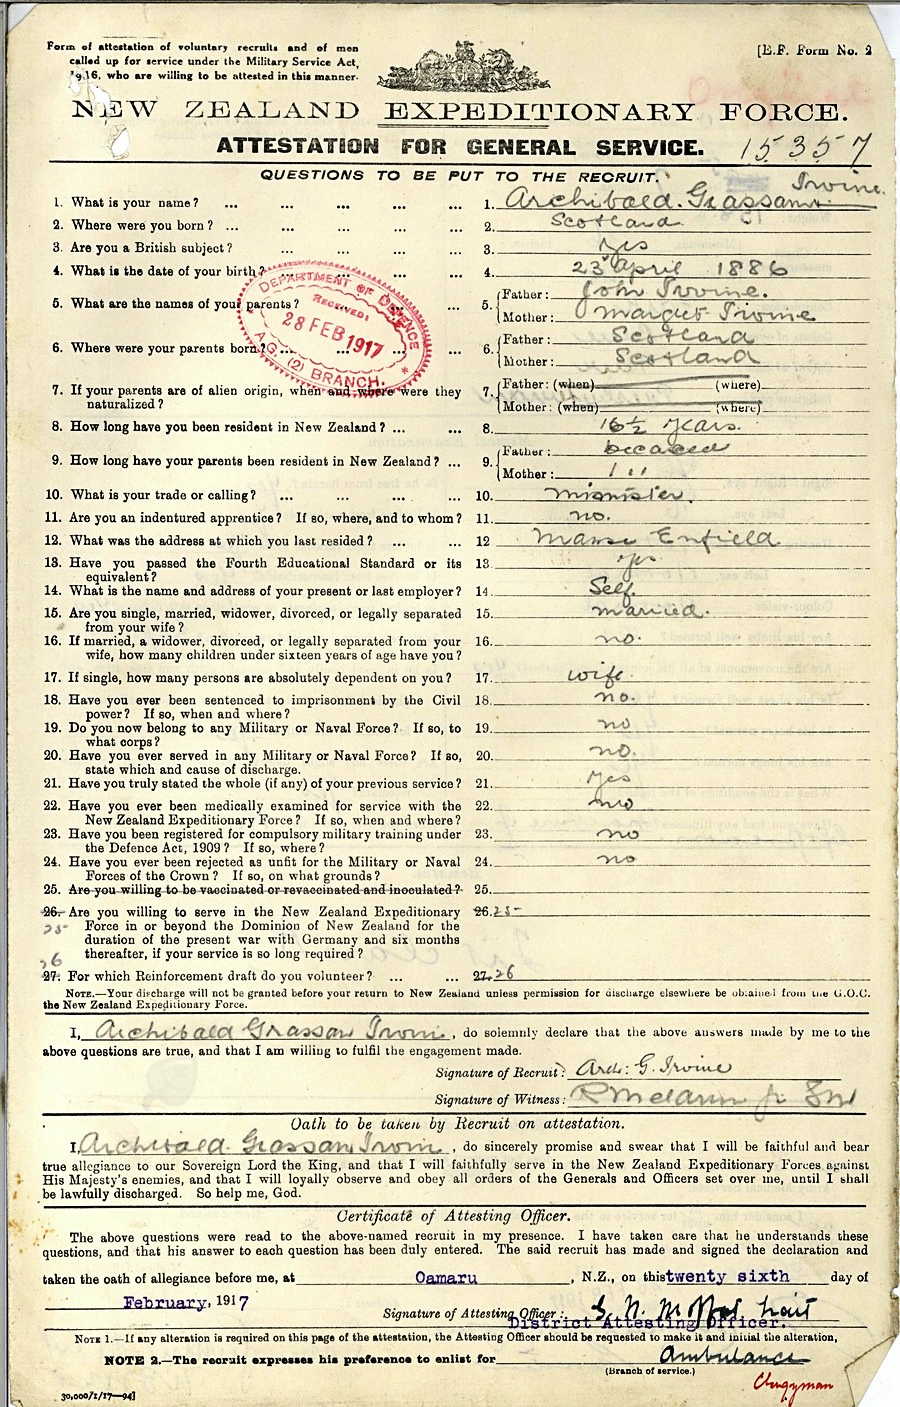 Form of attestation of voluntary recruits and of men
called up for service under the Military Service Act,
1916, who are willing to be attested in this manner.
[E.F. Form No. 2
NEW ZEALAND EXPEDITIONARY FORCE.
ATTESTATION FOR GENERAL SERVICE. 15357
QUESTIONS TO BE PUT TO THE RECRUIT.
1. What is your name? ... ... ... ... 1. Archibald Grassam Irvine.
2. Where were you born? ... ... ... ... 2. Scotland
3. Are you a British subject? ... ... ... 3. Yes
4. What is the date of your birth? ... ... ... 4. 23 April 1886
5. What are the names of your parents? ... 5. Father: John Irvine.
Mother: Margret Irvine
6. Where were your parents born? ... ... ... ... 6. Father: Scotland
Mother: Scotland
DEPARTMENT OF DEFENCE
RECEIVED:
28 FEB 1917
A.G. (2) BRANCH. *
7. If your parents are of alien origin, when and where were they 7. Father: (when) (where)
naturalized? Mother: (when) (where)
8. How long have you been resident in New Zealand? ... ... 8. 16½ years.
9. How long have your parents been resident in New Zealand? ... 9. Father: Deceased
Mother: 1 "
10. What is your trade or calling? ... ... ... ... 10. Minister.
11. Are you an indentured apprentice? If so, where, and to whom? 11. no.
12. What was the address at which you last resided? ... ... 12 Manse Enfield
13. Have you passed the Fourth Educational Standard or its 13. Yes
equivalent?
14. What is the name and address of your present or last employer? 14. Self.
15. Are you single, married, widower, divorced, or legally separated 15. married.
from your wife?
16. If married, a widower, divorced, or legally separated from your 16. no.
wife, how many children under sixteen years of age have you?
17. If single, how many persons are absolutely dependent on you? 17. wife.
18. Have you ever been sentenced to imprisonment by the Civil 18. no.
power? If so, when and where?
19. Do you now belong to any Military or Naval Force? If so, to 19. no
what corps?
20. Have you ever served in any Military or Naval Force? If so, 20. no.
state which and cause of discharge.
21. Have you truly stated the whole (if any) of your previous service? 21. Yes
22. Have you ever been medically examined for service with the 22. no
New Zealand Expeditionary Force? If so, when and where?
23. Have you been registered for compulsory military training under 23. no
the Defence Act, 1909? If so, where?
24. Have you ever been rejected as unfit for the Military or Naval 24. no
Forces of the Crown? If so, on what grounds?
25. Are you willing to be vaccinated or revaccinated and inoculated? 25.
26. Are you willing to serve in the New Zealand Expeditionary 26. 25
25 Force in or beyond the Dominion of New Zealand for the
duration of the present war with Germany and six months
thereafter, if your service is so long required?
26
27. For which Reinforcement draft do you volunteer? ... ... 27. 26
NOTE.—Your discharge will not be granted before your return to New Zealand unless permission for discharge elsewhere be obtained from the G.O.C.
the New Zealand Expeditionary Force.
I, Archibald Grassam Irvine, do solemnly declare that the above answers made by me to the
above questions are true, and that I am willing to fulfil the engagement made.
Signature of Recruit: Arch: G. Irvine
Signature of Witness:
Oath to be taken by Recruit on attestation.
I, Archibald Grassam Irvine, do sincerely promise and swear that I will be faithful and bear
true allegiance to our Sovereign Lord the King, and that I will faithfully serve in the New Zealand Expeditionary Forces against
His Majesty's enemies, and that I will loyally observe and obey all orders of the Generals and Officers set over me, until I shall
be lawfully discharged. So help me, God.
Certificate of Attesting Officer.
The above questions were read to the above-named recruit in my presence. I have taken care that he understands these
questions, and that his answer to each question has been duly entered. The said recruit has made and signed the declaration and
taken the oath of allegiance before me, at Oamaru, N.Z., on this twenty sixth day of
February, 1917
Signature of Attesting Officer: G. N. Moffat Lieut
District Attesting Officer.
NOTE 1.—If any alteration is required on this page of the attestation, the Attesting Officer should be requested to make it and initial the alteration,
NOTE 2.—The recruit expresses his preference to enlist for Ambulance
(Branch of service.)
Clergyman
30,000/1/17—94]